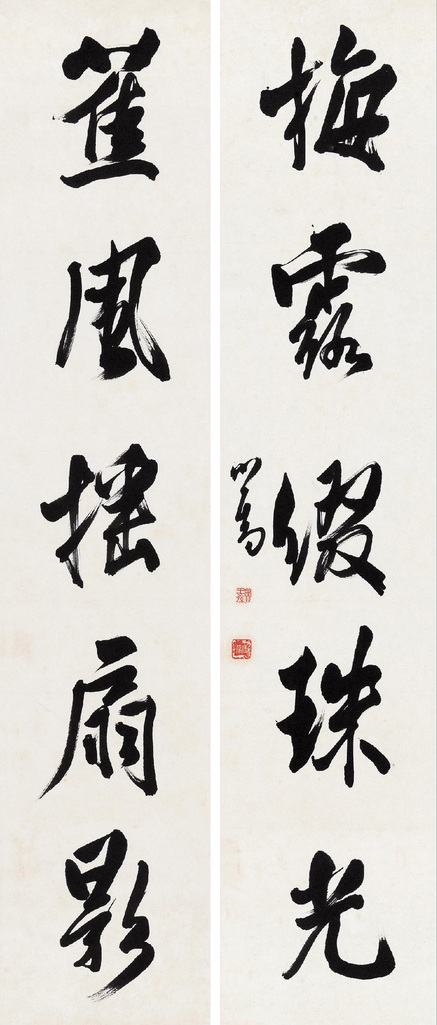 梅露綴珠光
蕉風搖扇影